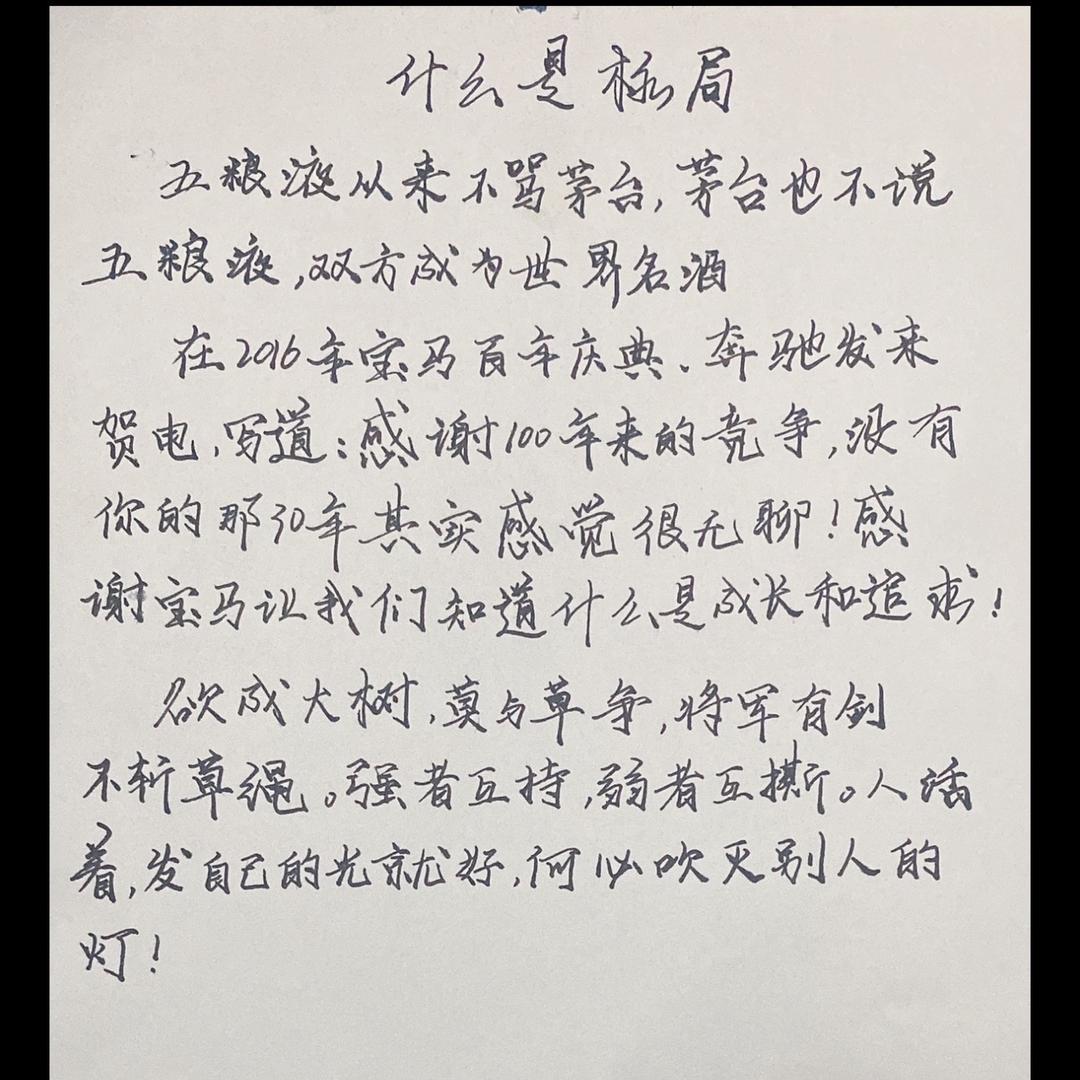 什么是格局
五粮液从来不骂茅台,茅台也不说
五粮液,双方成为世界名酒
在2016年宝马百年庆典、奔驰发来
贺电,写道:感谢100年来的竞争,没有
你的那30年其实感觉很无聊!感
谢宝马让我们知道什么是成长和追求!
欲成大树,莫与草争,将军有剑
不斩草绳。强者互持,弱者互撕。人活
着,发自己的光就好,何必吹灭别人的
灯!